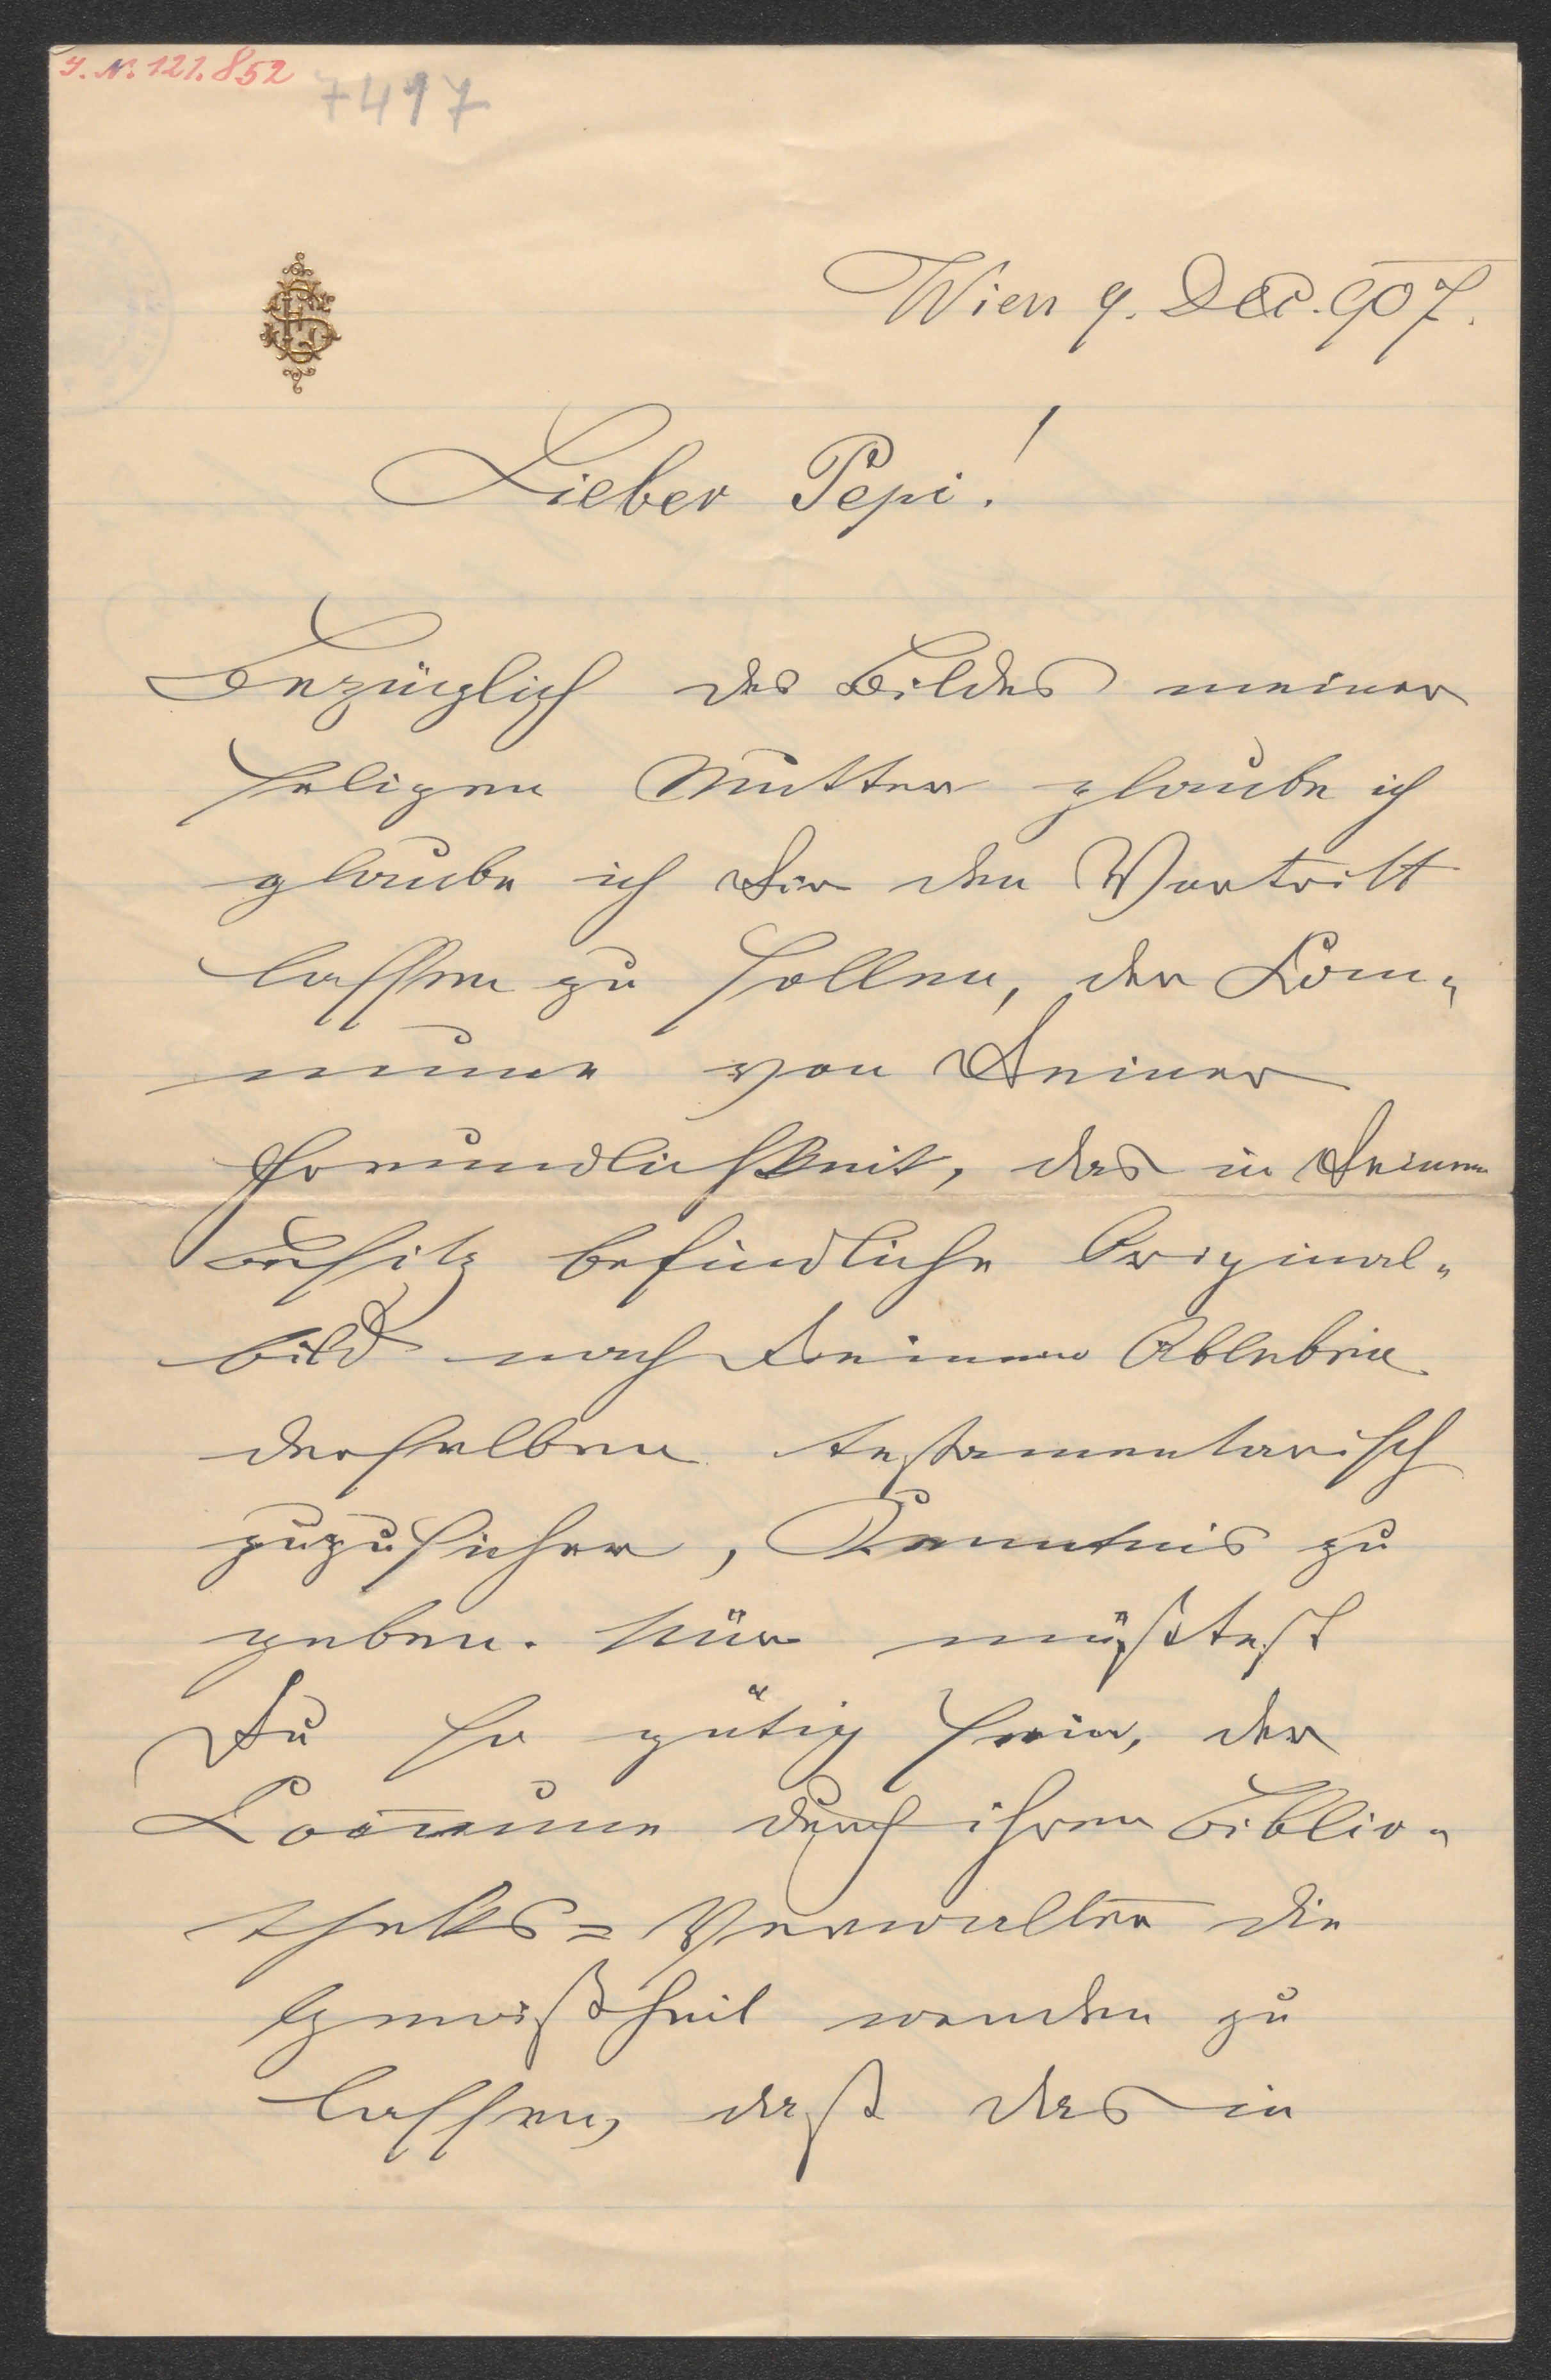 J. N. 121.852
7497
Wien 9. Dec. 907.
Lieber Pepi!
Bezüglich des Bildes meiner
seligen Mutter glaube ich
glaube ich Dir den Vortritt
lassen zu sollen, der Kom„
mune von Deiner
Freundlichkeit, das in Deinem
Besitz befindliche Original„
bild nach Deinem Ableben
derselben testamentarisch
zuzusichern, Kenntnis zu
geben. Nur müßtest
Du so gütig sein, der
Kom̅une durch ihren Biblio„
theks=Verwalter die
Gewißheit werden zu
lassen, daß das in